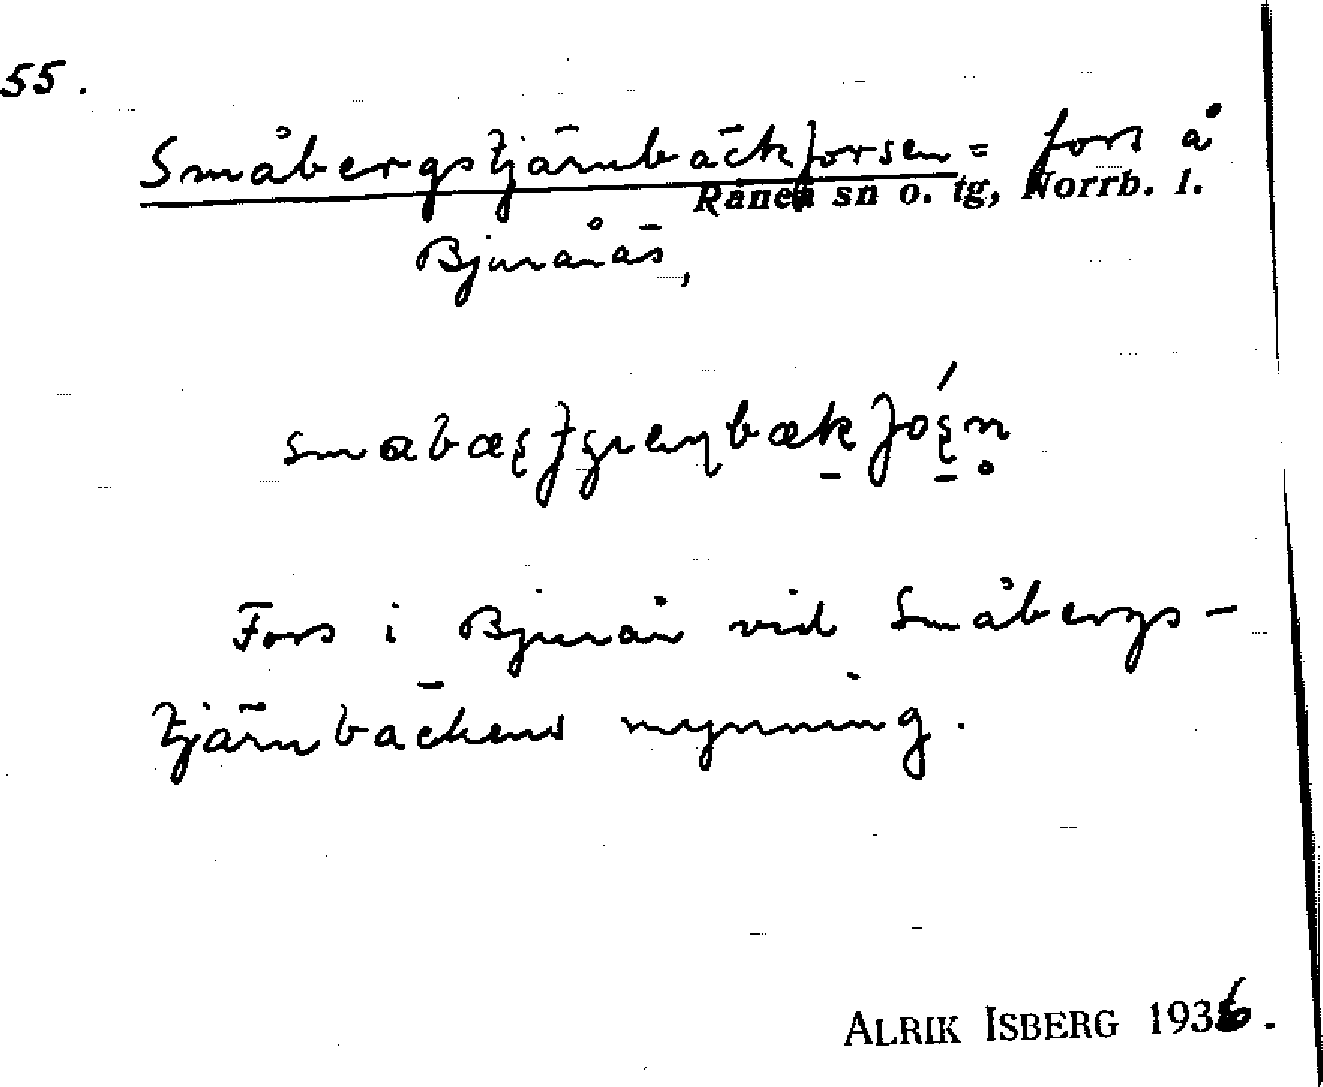 55.
Småbergstjärnbäckforsen = fors å
Råneå sn o. tg, Norrb. l.
Bjuråäs,
Fors i Bjurån vid Småbergs-
tjärnbäckens mynning.
ALRIK ISBERG 1936.